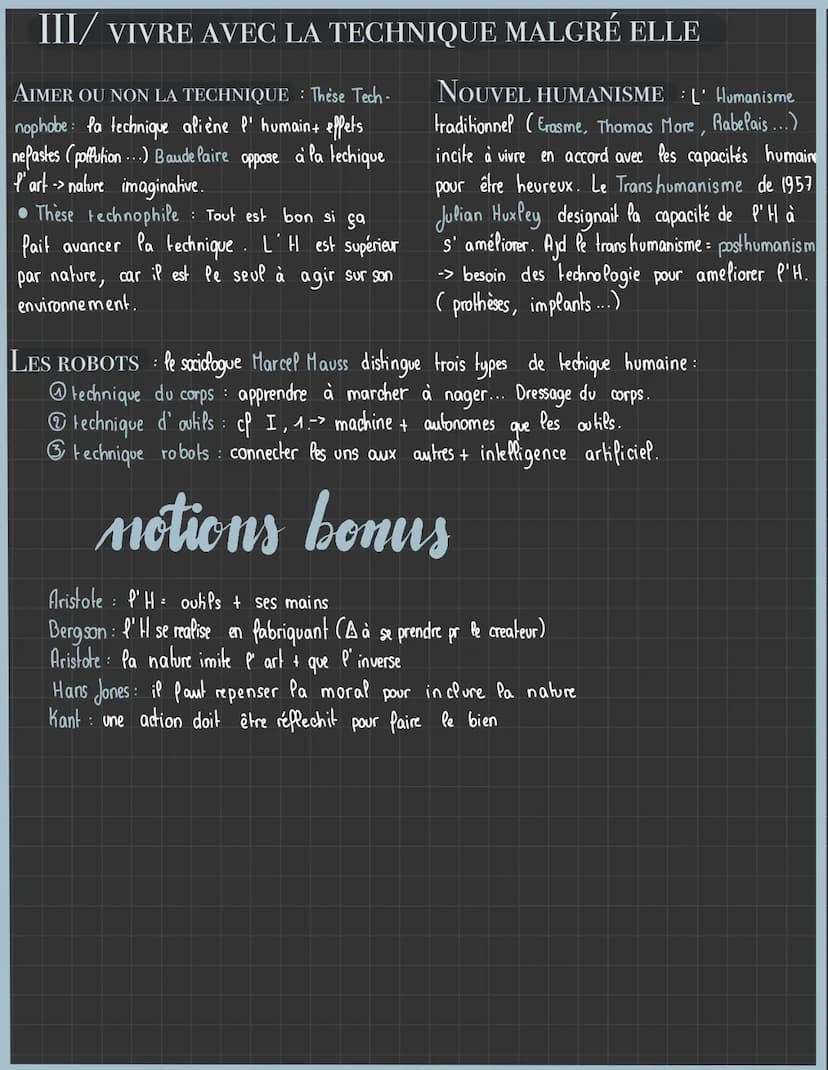 III/ VIVRE AVEC LA TECHNIQUE MALGRÉ ELLE
AIMER OU NON LA TECHNIQUE : Thèse Tech-
nophobe : la technique aliène l'humain + effets
nefastes (pollution ...) Baudelaire oppose à la techique
l'art -> nature imaginative.
• Thèse technophile : Tout est bon si ça
fait avancer la technique. L'H est supérieur
par nature, car il est le seul à agir sur son
environnement.
NOUVEL HUMANISME : L'Humanisme
traditionnel (Erasme, Thomas More, Rabelais ...)
incite à vivre en accord avec les capacités humain
pour être heureux. Le Transhumanisme de 1957
Julian Huxley designait la capacité de l'H à
s'améliorer. Ajd le transhumanisme = posthumanism
-> besoin des technologie pour ameliorer l'H.
(prothèses, implants ...)
LES ROBOTS : le sociologue Marcel Mauss distingue trois types de techique humaine :
① technique du corps : apprendre à marcher à nager... Dressage du corps.
② technique d'outils : cf I, 1.-> machine + autonomes que les outils.
③ technique robots : connecter les uns aux autres + intelligence artificiel.
notions bonus
Aristote : l'H = outils + ses mains
Bergson : l'H se realise en fabriquant (⚠ à se prendre pr le createur)
Aristote : la nature imite l'art + que l'inverse
Hans Jones : il faut repenser la moral pour inclure la nature
Kant : une action doit être réflechit pour faire le bien